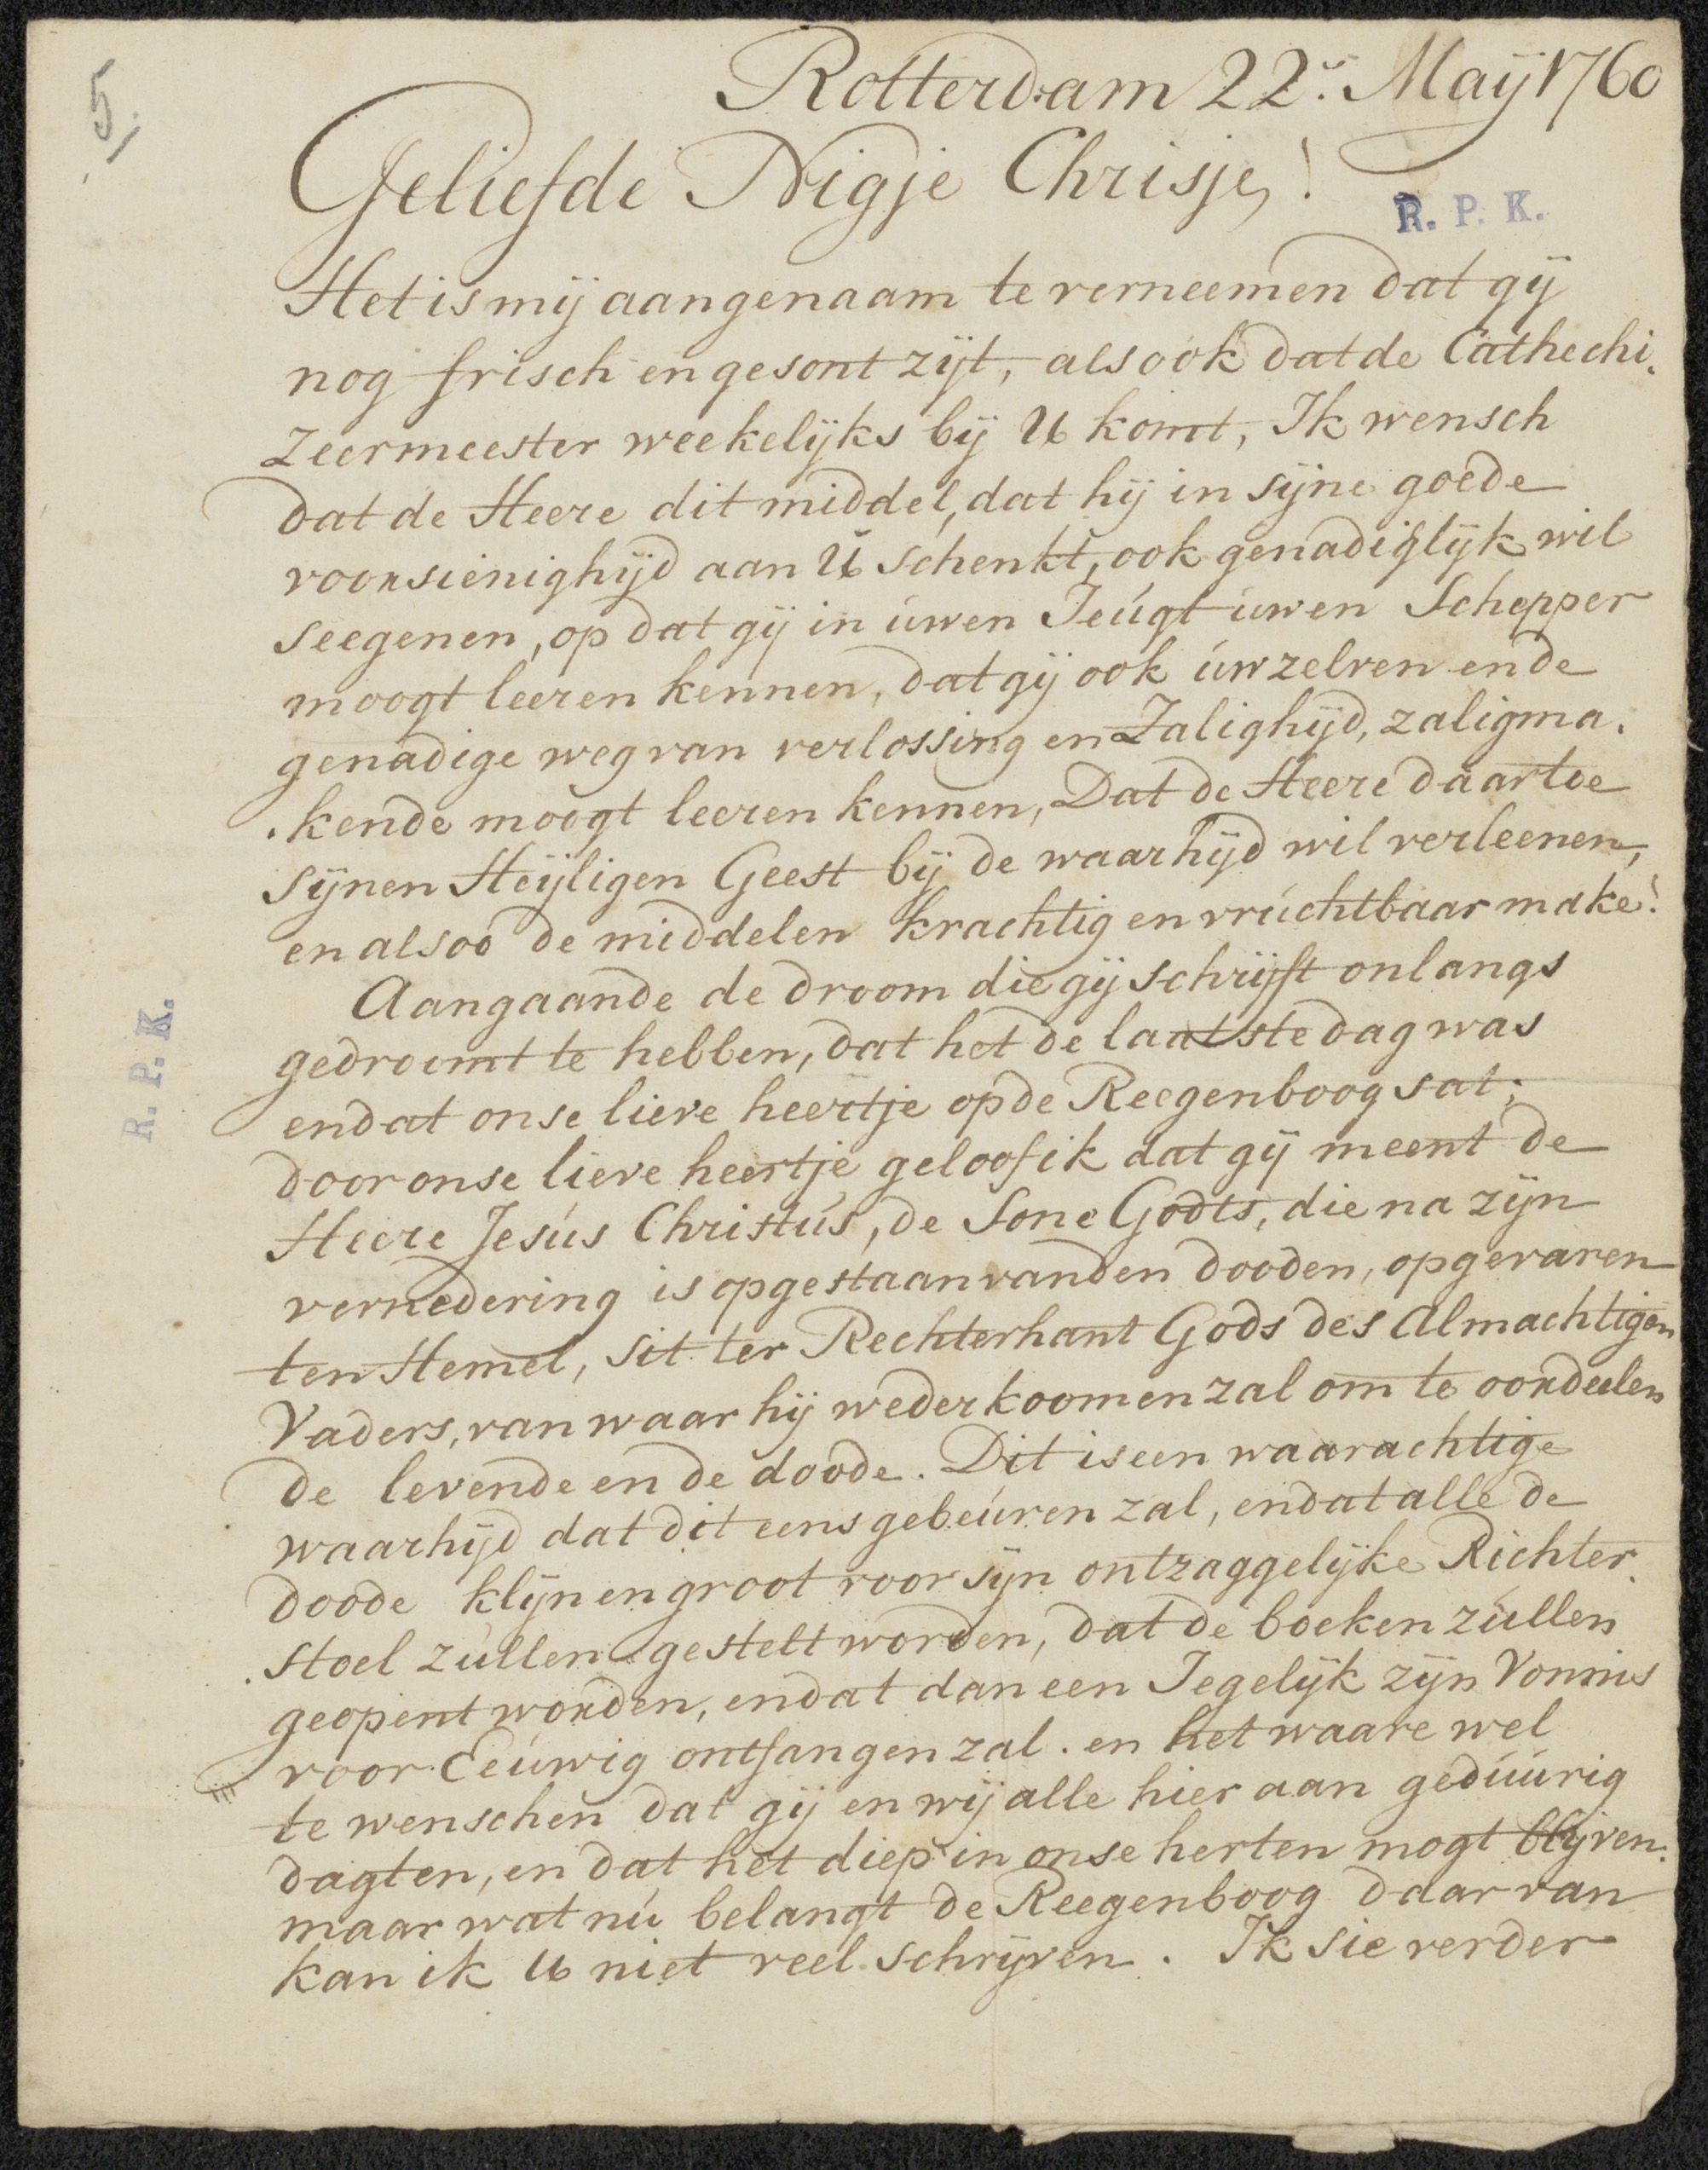 5.
Rotterdam 22:s Maÿ 1760
Geliefde Nigje Chrisje!
R. P. K.
Het is mij aangenaam te verneemen dat gij
nog frisch en gesont zijt, als ook dat de Cathechi.
Zeermeester weekelijks bij U komt, Ik wensch
dat de Heere dit middel, dat hij in sijne goede
voorsienighijd aan U schenkt, ook genadiglijk wil
seegenen, op dat gij in úwen Jeúgt úwen Schepper
moogt leeren kennen, dat gij ook úw zelven en de
genadige weg van verlossing en Zalighijd, zaligma.
.kende moogt leeren kennen, Dat de Heere daartoe
Sijnen Heijligen Geest bij de waarhijd wil verleenen,
en alsoo de middelen krachtig en vrúchtbaar make!
Aangaande de droom die gij schrijft onlangs
gedroomt te hebben, dat het de laatste dag was
en dat onse lieve heertje op de Reegenboog sat;
door onse lieve heertje geloof ik dat gij meent de
Heere Jesús Christús, de Sone Godts, die na zijn
vernedering is opgestaan van den dooden, opgevaren
ten Hemel, sit ter Rechterhant Gods des Almachtigen
Vaders, van waar hij weder koomen zal om te oordeelen
de levende en de doode. Dit is een waarachtige
waarhijd dat dit eens gebeúren zal, en dat alle de
doode klijn en groot voor sijn ontzaggelijke Richter.
.stoel zúllen gestelt worden, dat de boeken zúllen
geopent worden, en dat dan een Iegelijk zijn Vonnis
voor Eeúwig ontfangen zal. en het waare wel
te wenschen dat gij en wij alle hier aan gedúúrig
dagten, en dat het diep in onse herten mogt blijven.
maar wat nú belangt de Reegenboog daar van
kan ik U niet veel schrijven. Ik sie verder
R. P. K.